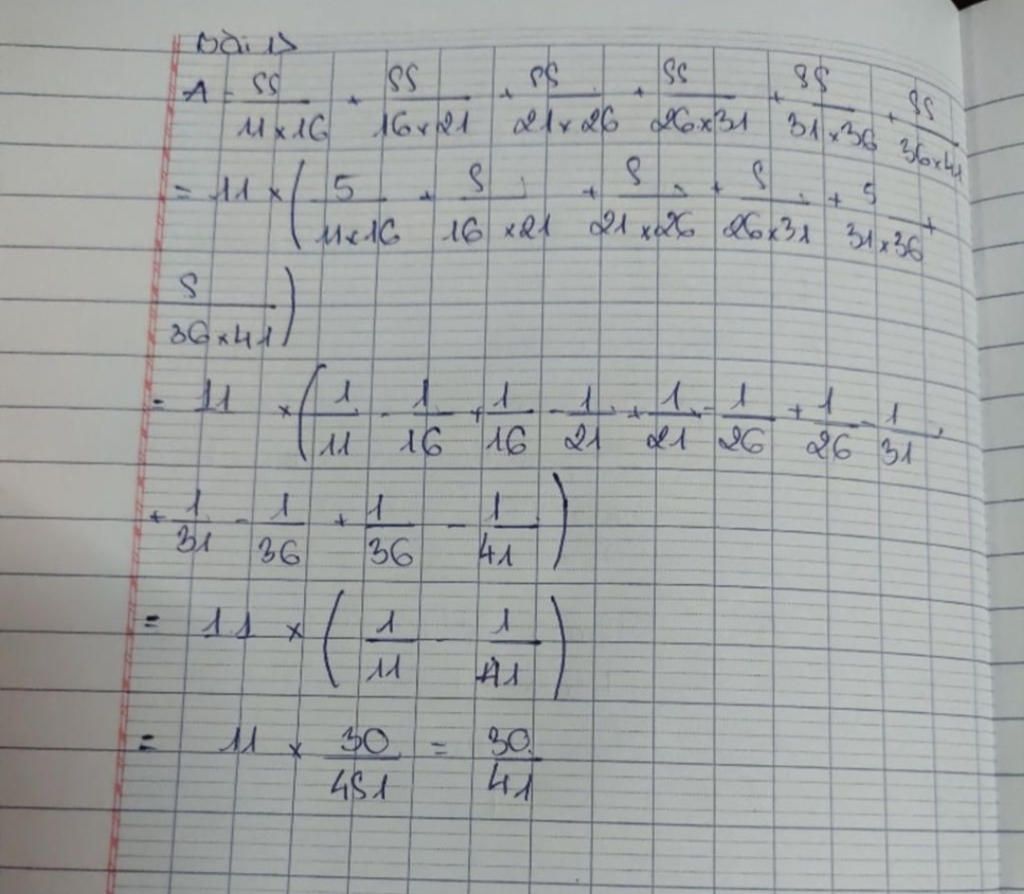 Bài 1>
A = 55/11×16 + 55/16×21 + 55/21×26 + 55/26×31 + 55/31×36 + 55/36×41
= 11 × (5/11×16 + 5/16×21 + 5/21×26 + 5/26×31 + 5/31×36 +
5/36×41)
= 11 × (1/11 - 1/16 + 1/16 - 1/21 + 1/21 - 1/26 + 1/26 - 1/31
+ 1/31 - 1/36 + 1/36 - 1/41)
= 11 × (1/11 - 1/41)
= 11 × 30/451 = 30/41